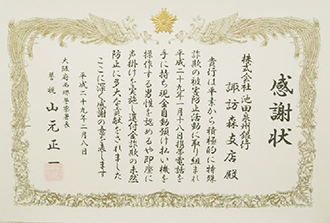 感謝状
株式会社池田泉州銀行
諏訪森支店殿
貴行は平素から積極的に特殊
詐欺の被害防止活動に取り組まれ
平成二十九年一月十八日携帯電話を
手に持ち現金自動預け払い機を
操作する男性を認めるや即座に
声掛けを実施し還付金詐欺の未然
防止に多大な貢献をされました
ここに深く感謝の意を表します
平成二十九年二月八日
大阪府西堺警察署長
警視 山元正一